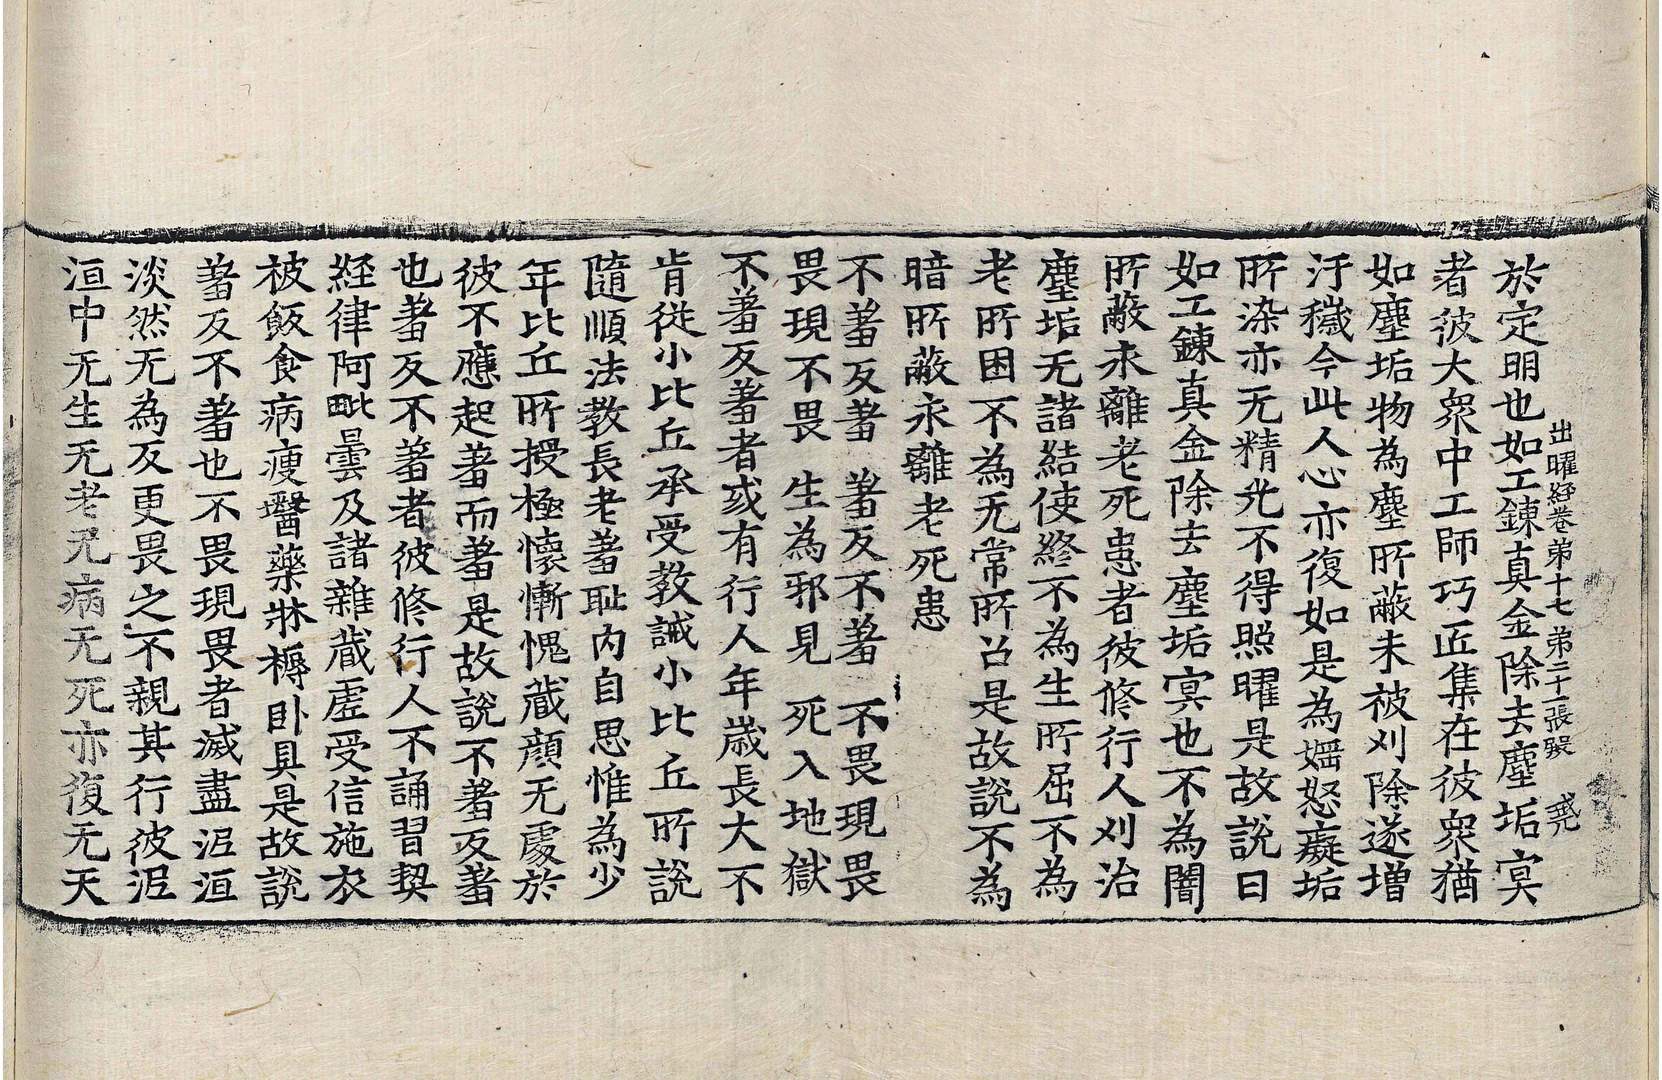 出曜経卷苐十七 苐二十一張 㷀
於㝎明也如工鍊真金除去塵垢㝠
者彼大衆中工師巧匠集在彼衆猶
如塵垢物為塵所蔽未被刈除遂增
汙穢今此人心亦復如是為婬怒癡垢
所染亦无精光不得照曜是故說曰
如工鍊真金除去塵垢㝠也不為闇
所蔽永離老死患者彼修行人刈治
塵垢无諸結使終不為生所屈不為
老所困不為无常所召是故說不為
暗所蔽永離老死患
不羞反羞 羞反不羞 不畏現畏
畏現不畏 生為邪見 死入地獄
不羞反羞者或有行人年歲長大不
肯從小比丘承受教誡小比丘所說
隨順法教長老羞恥內自思惟為少
年比丘所授極懷慚愧藏顔无處於
彼不應起羞而羞是故說不羞反羞
也羞反不羞者彼修行人不誦習契
経律阿毗曇及諸雜藏虛受信施衣
被飯食病瘦醫藥牀褥卧具是故說
羞反不羞也不畏現畏者滅盡泥洹
淡然无為反更畏之不親其行彼泥
洹中无生无老无病无死亦復无天